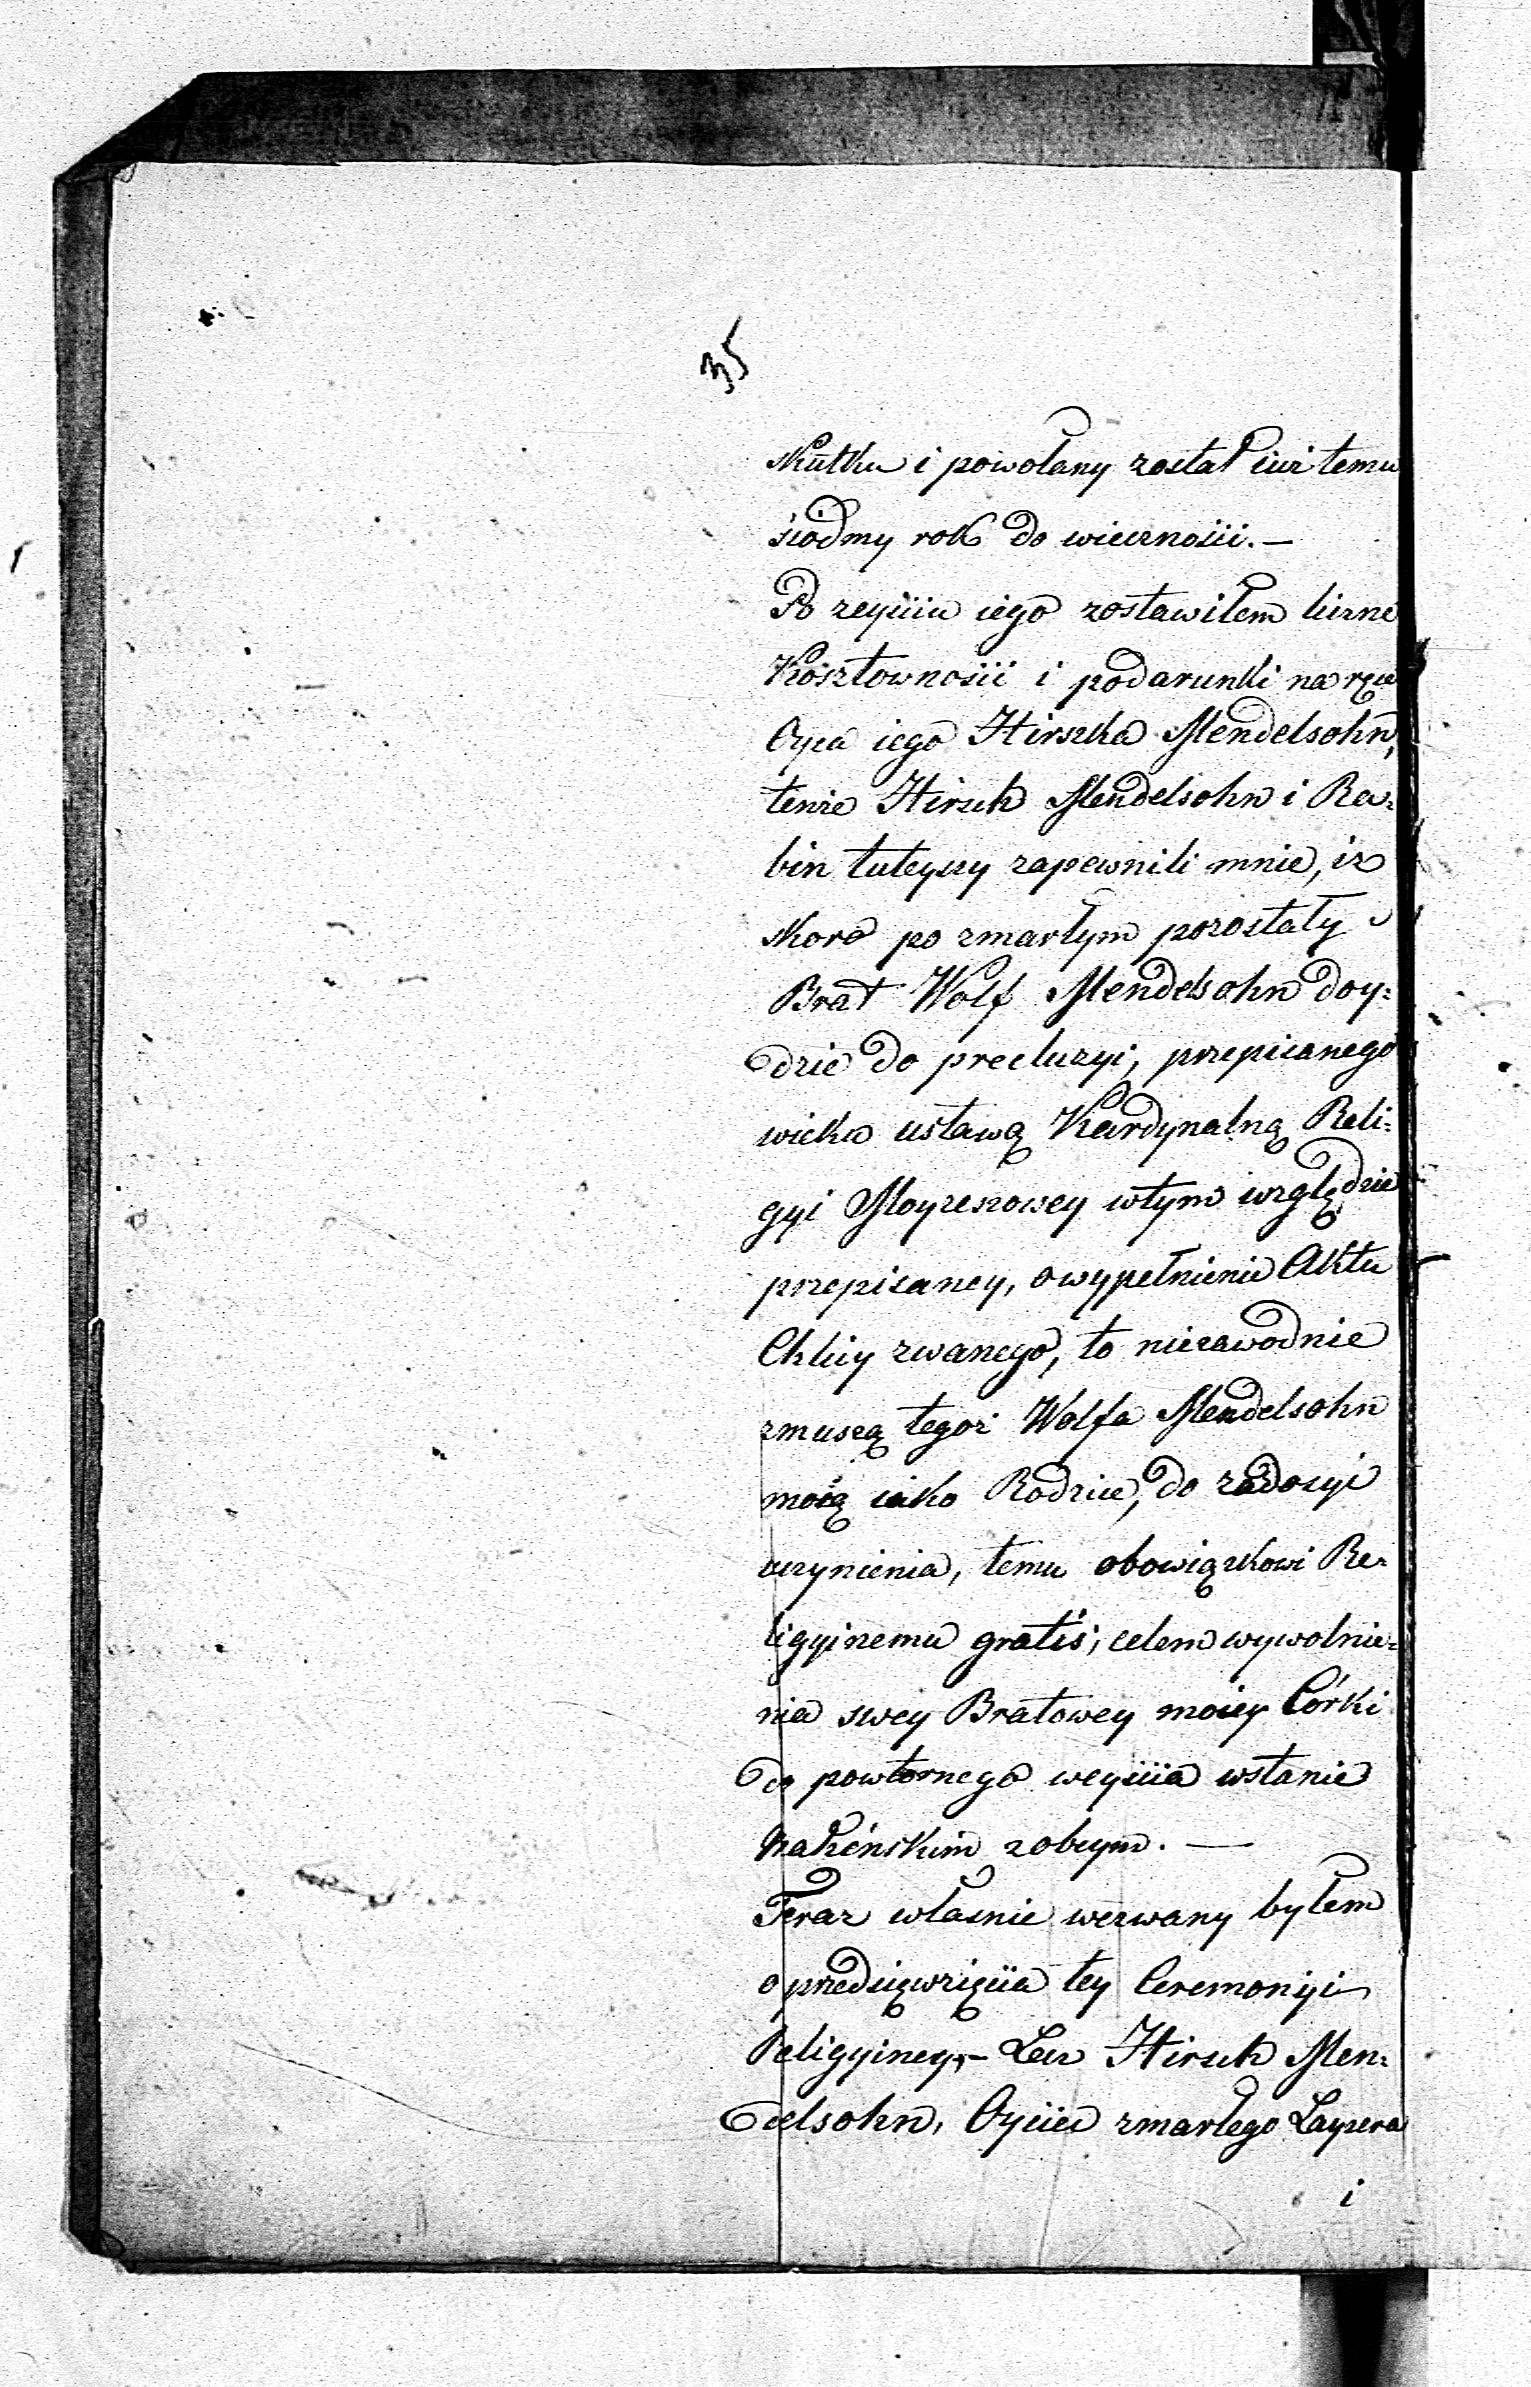 35
skutku i powołany został iuż temu
siódmy rok do wieczności. —
Po zeyściu iego zostawiłem liczne
Kosztowności i podarunki na ręce
Oyca iego Hirszka Mendelsohn,
tenże Hirszk Mendelsohn i Ra=
bin tuteyszy zapewnili mnie, iż
skoro po zmarłym pozostały
Brat Wolf Mendelsohn doy=
dzie do precluzyi, przepisanego
wieku ustawą Kardynalną Reli=
gyi Moyzeszowey w tym względzie
przepisaney, o wypełnienie Aktu
Chlicy zwanego, to niezawodnie
zmuszą tegoż Wolfa Mendelsohn
mocą iako Rodzice, do zadosyć
uczynienia, temu obowiązkowi Re=
ligyinemu gratis, celem wywolnie=
nia swey Bratowey moiey Córki
do powtornego weyścia wstanie
Małżeńskim z obcym. —
Teraz własnie wezwany byłem
o przedsięwzięcia tey Ceremonyi
Religyiney, — Lecz Hirszk Men=
delsohn, Oyciec zmarłego Layzera
i